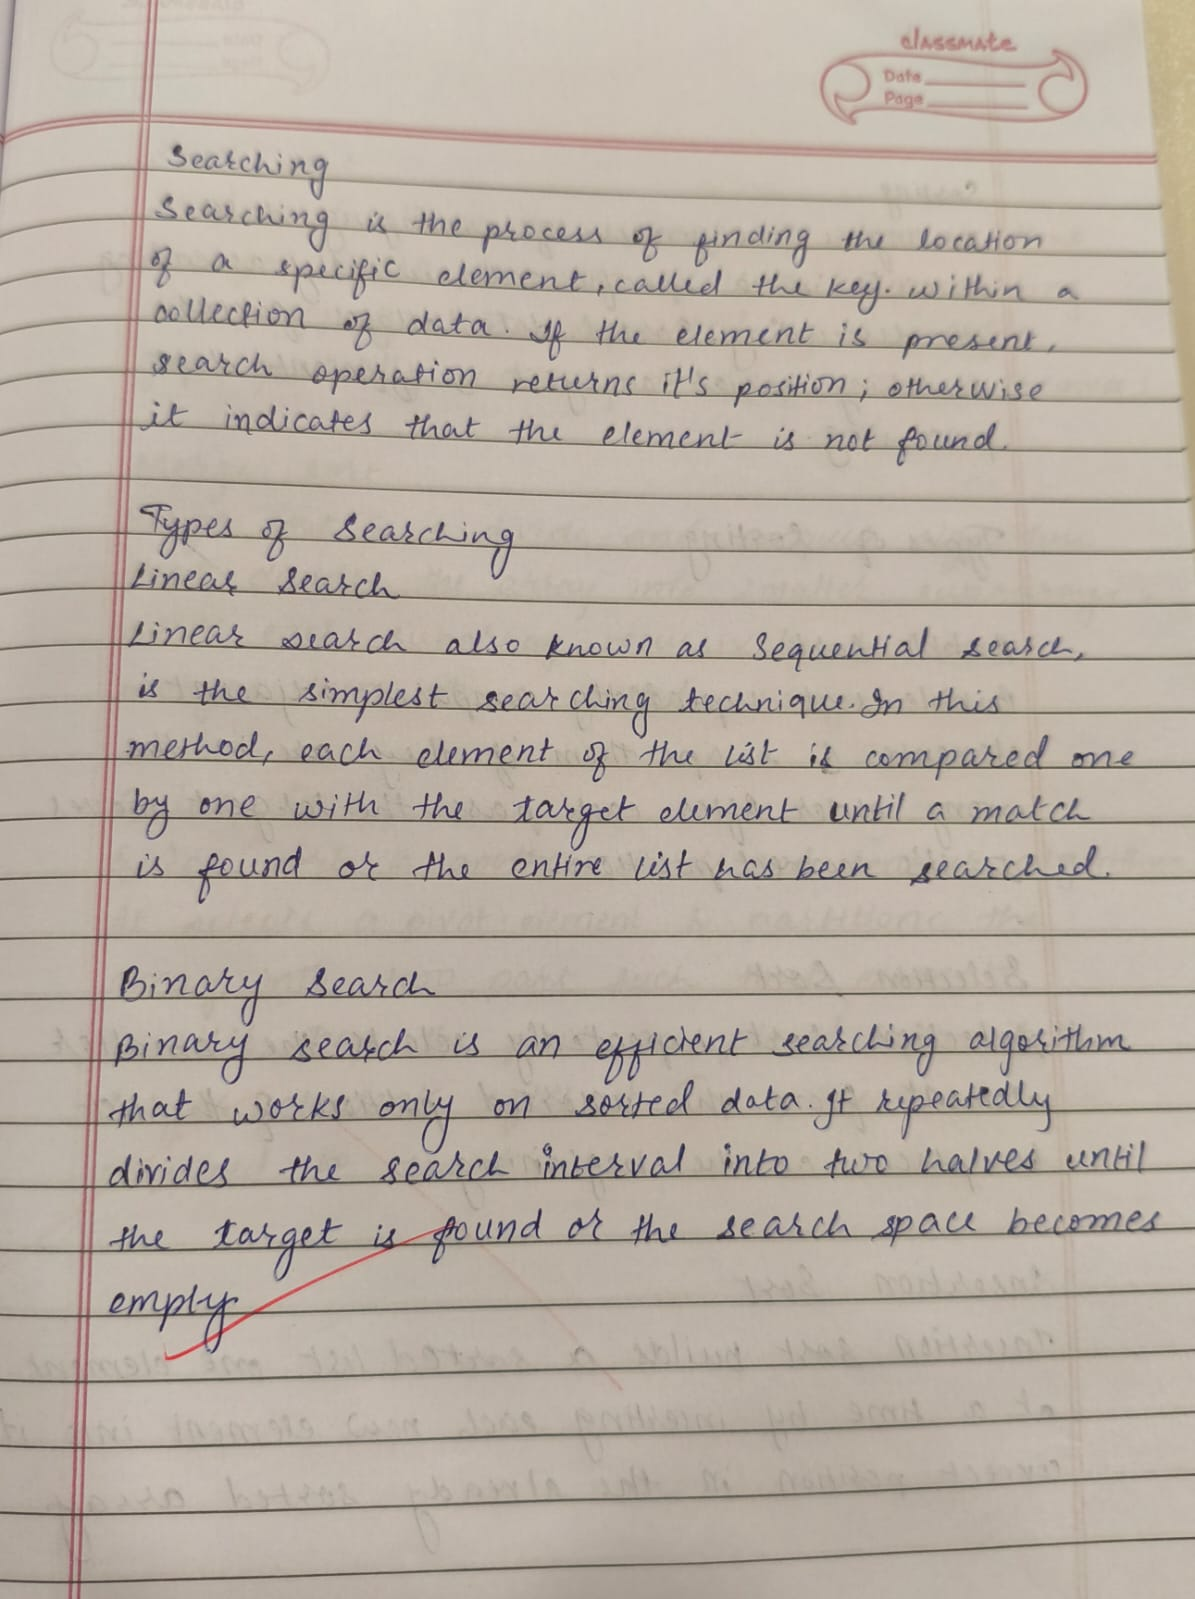 classmate
Date
Page
Searching
Searching is the process of finding the location
of a specific element, called the key. within a
collection of data. If the element is present,
search operation returns it's position; otherwise
it indicates that the element is not found.
Types of Searching
Linear Search
Linear search also known as Sequential search,
is the simplest searching technique. In this
method, each element of the list is compared one
by one with the target element until a match
is found or the entire list has been searched.
Binary Search
Binary search is an efficient searching algorithm
that works only on sorted data. It repeatedly
divides the search interval into two halves until
the target is found or the search space becomes
empty.